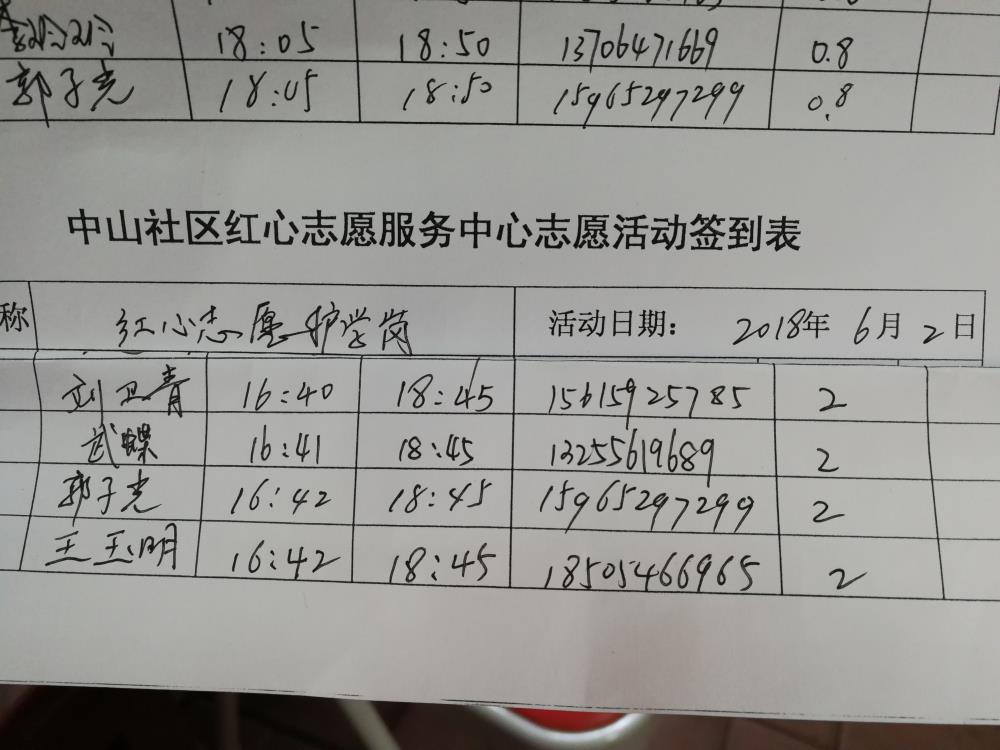 18:05 18:50 13706471669 0.8
郭子光 18:05 18:50 15965297299 0.8
中山社区红心志愿服务中心志愿活动签到表
称 红心志愿护学岗 活动日期: 2018年 6月 2日
刘卫青 16:40 18:45 15615925785 2
武蝶 16:41 18:45 13255619689 2
郭子光 16:42 18:45 15965297299 2
王玉明 16:42 18:45 18505466965 2